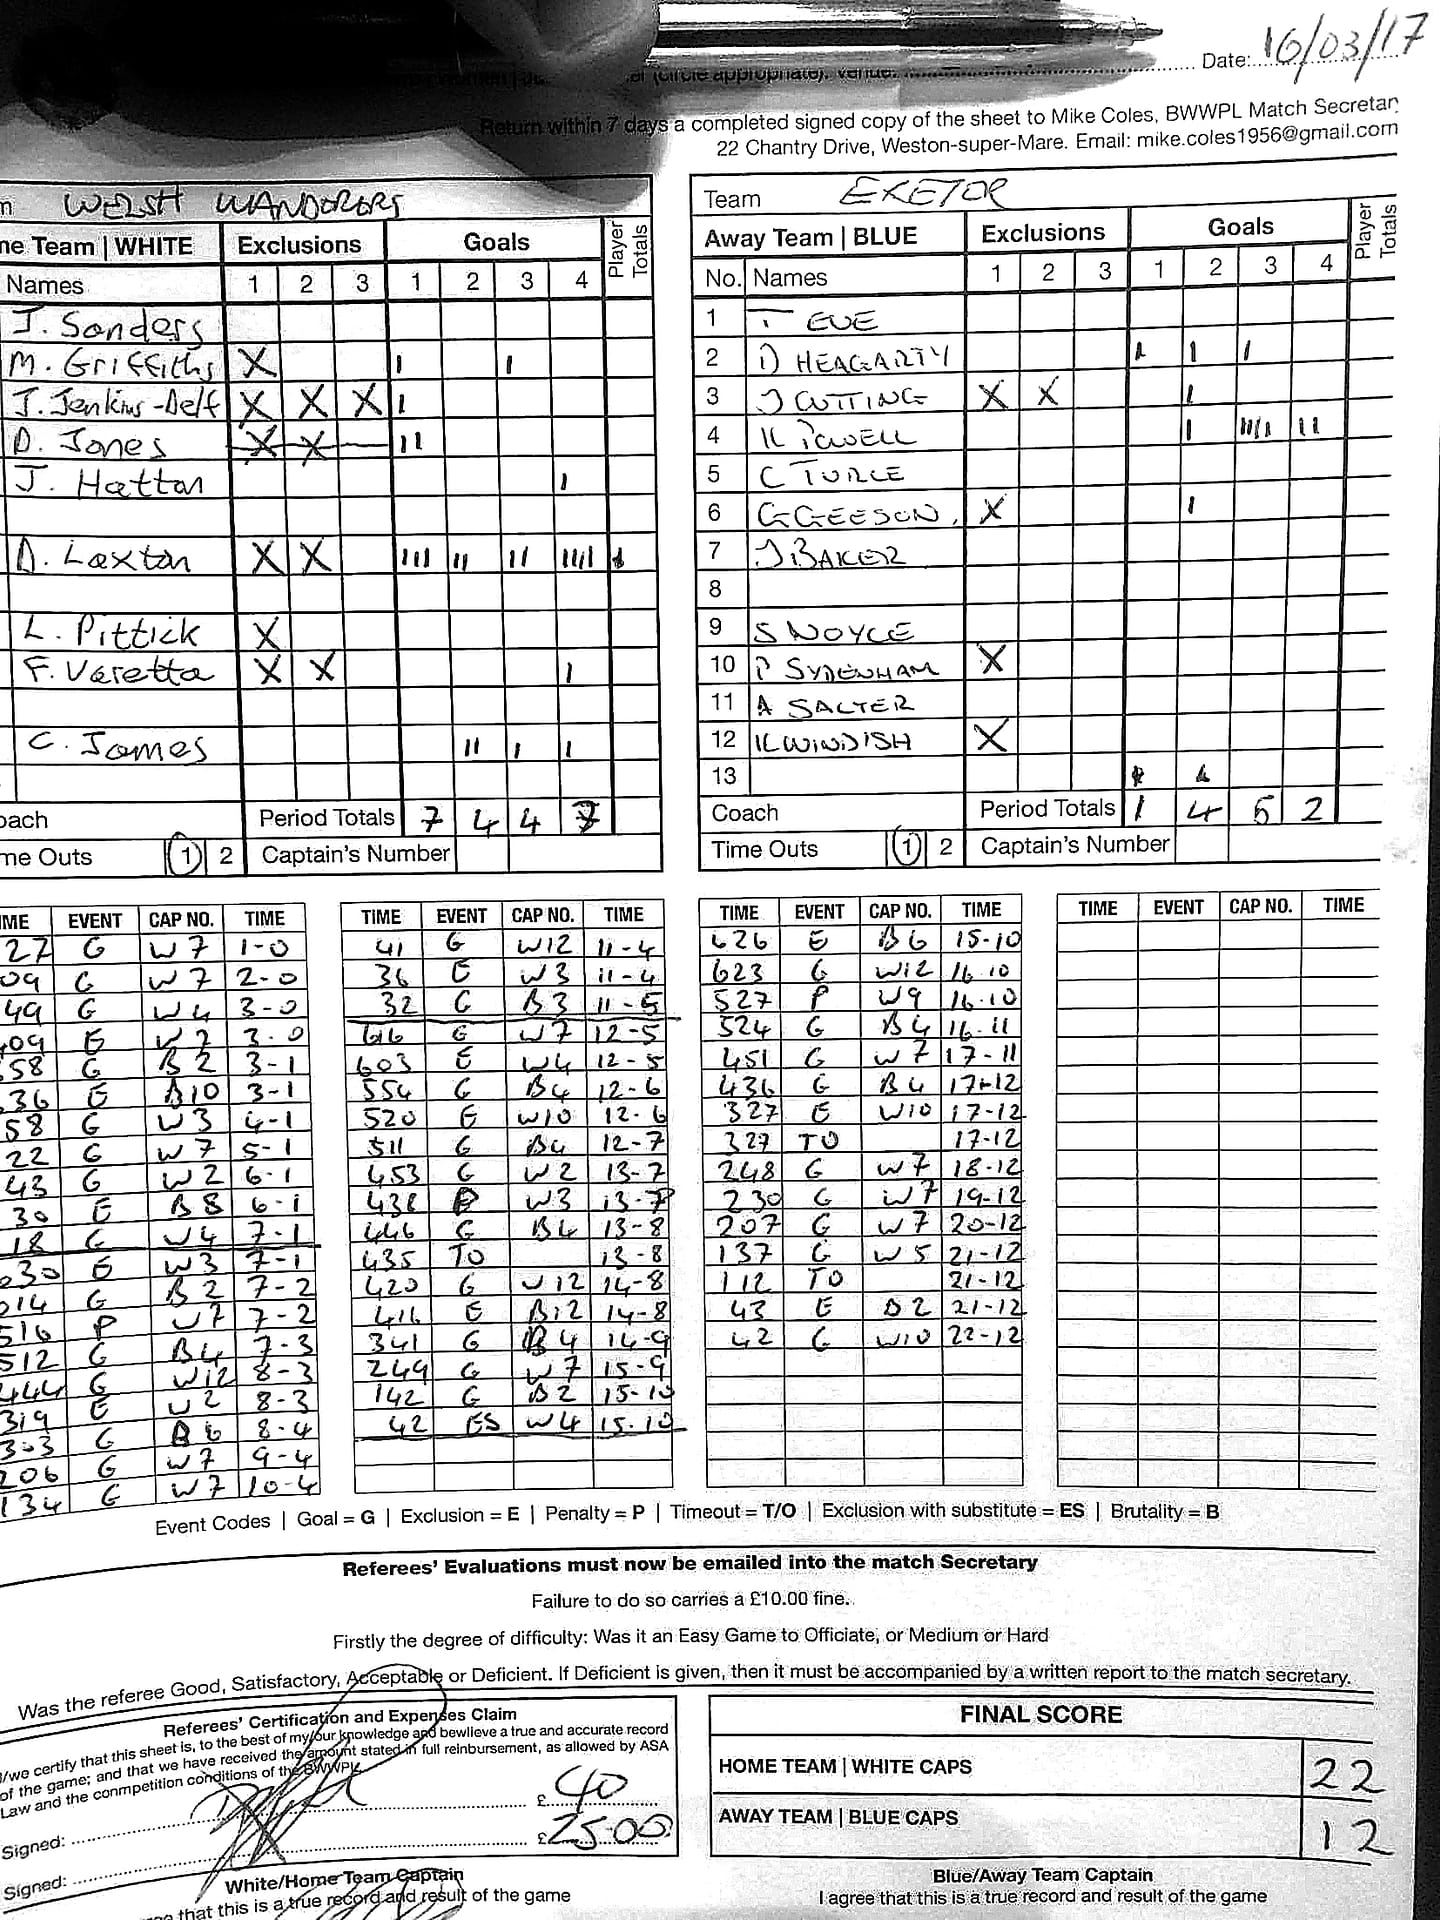 Date: 16/03/17
Return within 7 days a completed signed copy of the sheet to Mike Coles, BWWPL Match Secretar
22 Chantry Drive, Weston-super-Mare. Email: mike.coles1956@gmail.com
WELSH WANDORORS
ne Team | WHITE Exclusions Goals Player Totals
Names 1 2 3 1 2 3 4
J. Sanders
M. Griffiths X I I
J. Jenkins-Delf X X X I
D. Jones X X II
J. Hatton I
D. Laxton X X III II II IIII
L. Pittick X
F. Varetta X X I
C. James II I I
oach Period Totals 7 4 4 7
me Outs 1 2 Captain's Number
Team EXETOR
Away Team | BLUE Exclusions Goals Player Totals
No. Names 1 2 3 1 2 3 4
1 T EVE
2 D HEAGARTY I I I
3 J CUTTING X X I
4 K POWELL I IIII II
5 C TURLE
6 G GEESON. X I
7 J BAKER
8
9 S NOYCE
10 P SYDENHAM X
11 A SALTER
12 K WINDISH X
13
Coach Period Totals 1 4 5 2
Time Outs 1 2 Captain's Number
IME EVENT CAP NO. TIME
27 G W7 1-0
09 G W7 2-0
49 G W4 3-0
409 E W2 3-0
58 G B2 3-1
36 E B10 3-1
58 G W3 4-1
22 G W7 5-1
43 G W2 6-1
30 E B8 6-1
18 G W4 7-1
630 E W3 7-1
614 G B2 7-2
516 P W7 7-2
512 G B4 7-3
444 G W12 8-3
319 E W2 8-3
303 G B6 8-4
206 G W7 9-4
134 G W7 10-4
TIME EVENT CAP NO. TIME
41 G W12 11-4
36 E W3 11-4
32 G B3 11-5
616 G W7 12-5
603 E W4 12-5
554 G B4 12-6
520 E W10 12-6
511 G B4 12-7
453 G W2 13-7
438 W3 13-7
446 G B4 13-8
435 TO 13-8
420 G W12 14-8
416 E B12 14-8
341 G B4 14-9
249 G W7 15-9
142 G B2 15-10
42 ES W4 15-10
TIME EVENT CAP NO. TIME
626 E B6 15-10
623 G W12 16-10
527 P W9 16-10
524 G B4 16-11
451 G W7 17-11
436 G B4 17-12
327 E W10 17-12
327 TO 17-12
248 G W7 18-12
230 G W7 19-12
207 G W7 20-12
137 G W5 21-12
112 TO 21-12
43 E B2 21-12
42 G W10 22-12
TIME EVENT CAP NO. TIME
Event Codes | Goal = G | Exclusion = E | Penalty = P | Timeout = T/O | Exclusion with substitute = ES | Brutality = B
Referees' Evaluations must now be emailed into the match Secretary
Failure to do so carries a £10.00 fine.
Firstly the degree of difficulty: Was it an Easy Game to Officiate, or Medium or Hard
Was the referee Good, Satisfactory, Acceptable or Deficient. If Deficient is given, then it must be accompanied by a written report to the match secretary.
Referees' Certification and Expenses Claim
I/we certify that this sheet is, to the best of my/our knowledge and bewlieve a true and accurate record
of the game; and that we have received the amount stated in full reinbursement, as allowed by ASA
Law and the conmpetition conditions of the BWWPL
Signed: £ 40
Signed: £ 25.00
White/Home Team Captain
that this is a true record and result of the game
FINAL SCORE
HOME TEAM | WHITE CAPS 22
AWAY TEAM | BLUE CAPS 12
Blue/Away Team Captain
I agree that this is a true record and result of the game